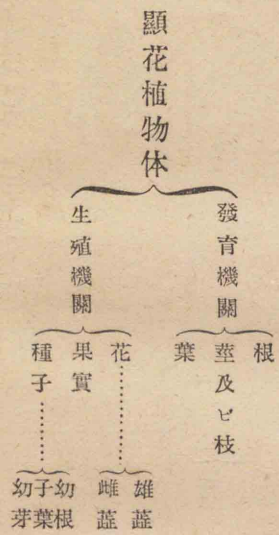 顯花植物体
發育機關
根
莖及ビ枝
葉
生殖機關
花
雄蕋
雌蕋
果實
種子
幼根
子葉
幼芽